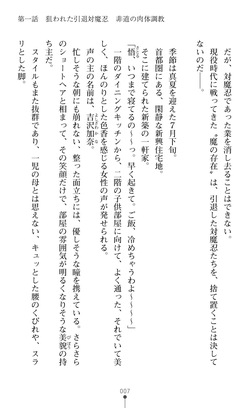 第一話　狙われた引退対魔忍　非道の肉体調教
だが、対魔忍であった業を消し去ることはできない。
現役時代に戦ってきた〝魔の存在〟は、引退した対魔忍たちを、捨て置くことは決して
ないのだ――。
季節は真夏を迎えた７月下旬。
首都圏にある、閑静な新興住宅地。
そこに建てられた新築の一軒家。
「悟、いつまで寝てるの～～っ。早く起きて、ご飯、冷めちゃうわよ～～～～」
一階のダイニングキッチンから、二階の子供部屋に向けて、よく通った、それでいて美
しく、ほんのりとした色香を感じる女性の声が発せられる。
声の主の名前は、吉沢加奈。
忙しそうな朝にも崩れない、整った面立ちには、優しそうな瞳を携えている。さらさら
のショートヘアと相まって、その笑顔だけで、部屋の雰囲気が明るくなりそうな美貌の持
ち主だ。
スタイルもまた抜群であり、一児の母とは思えない、キュッとした腰のくびれや、スラ
リとした脚。
007